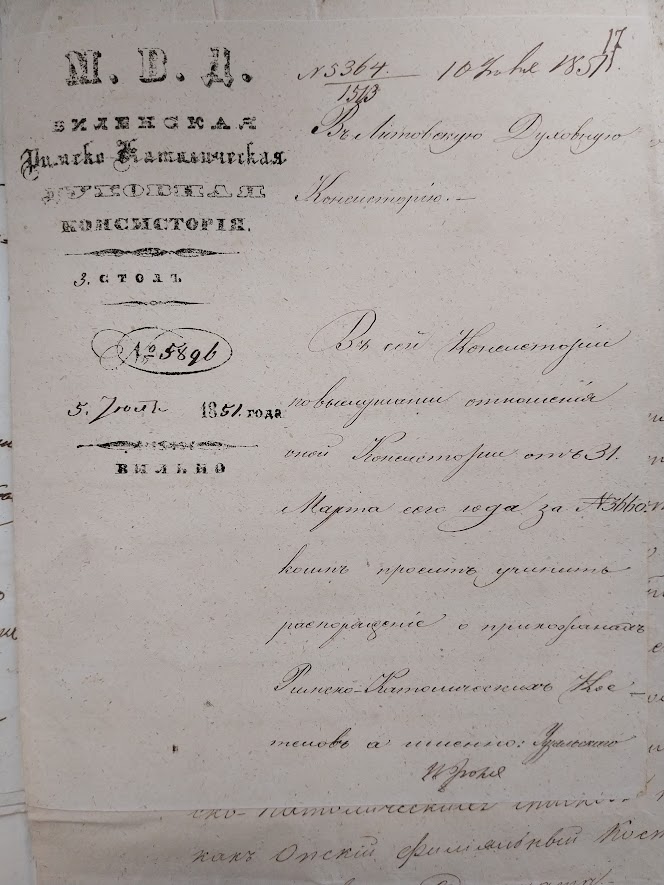 17
М. В. Д.
ВИЛЕНСКАЯ
Римско-Католическая
ДУХОВНАЯ
КОНСИСТОРІЯ.
3. СТОЛЪ
№ 5896
5. Іюля 1851. года
ВИЛЬНО
N 5364. 10 Іюля 1851
1513
Въ Литовскую Духовную
Консисторію.—
Въ сей Консисторіи
по выслушаніи отношенія
оной Консисторіи отъ 31.
Марта сего года за №3660.
коимъ проситъ учинить
распоряженіе о прихожанахъ
Римско-Католическихъ Кос-
теловъ а именно:
ско-Католическій
какъ Опскій филіяльный Кост